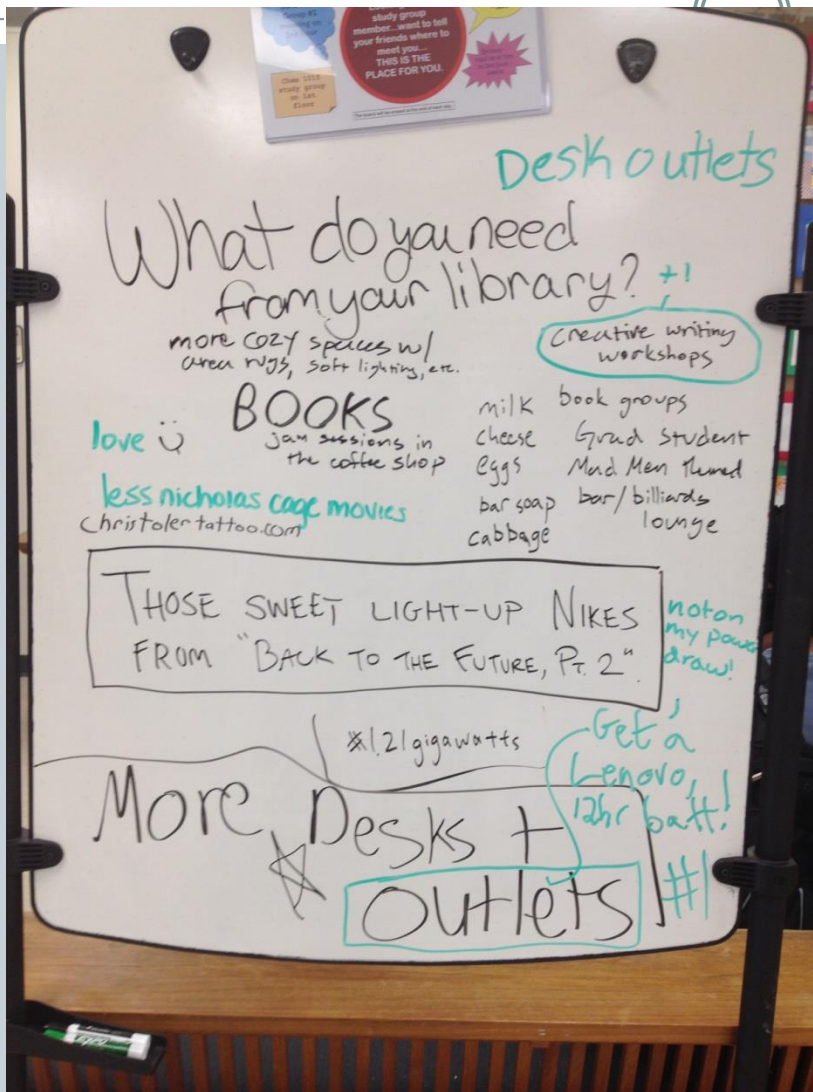 study group
member...want to tell
your friends where to
meet you...
THIS IS THE
PLACE FOR YOU.
Chem 1015
study group
on 1st
floor
Desk outlets
What do you need
from your library?
+1
creative writing
workshops
more cozy spaces w/
area rugs, soft lighting, etc.
BOOKS
jam sessions in
the coffee shop
love
less nicholas cage movies
christolertattoo.com
milk
cheese
eggs
bar soap
cabbage
book groups
Grad Student
Mad Men Themed
bar/billiards
lounge
THOSE SWEET LIGHT-UP NIKES
FROM "BACK TO THE FUTURE, PT. 2".
not on
my power
draw!
#1.21gigawatts
Get a
Lenovo,
12hr batt!
More Desks +
outlets
#1